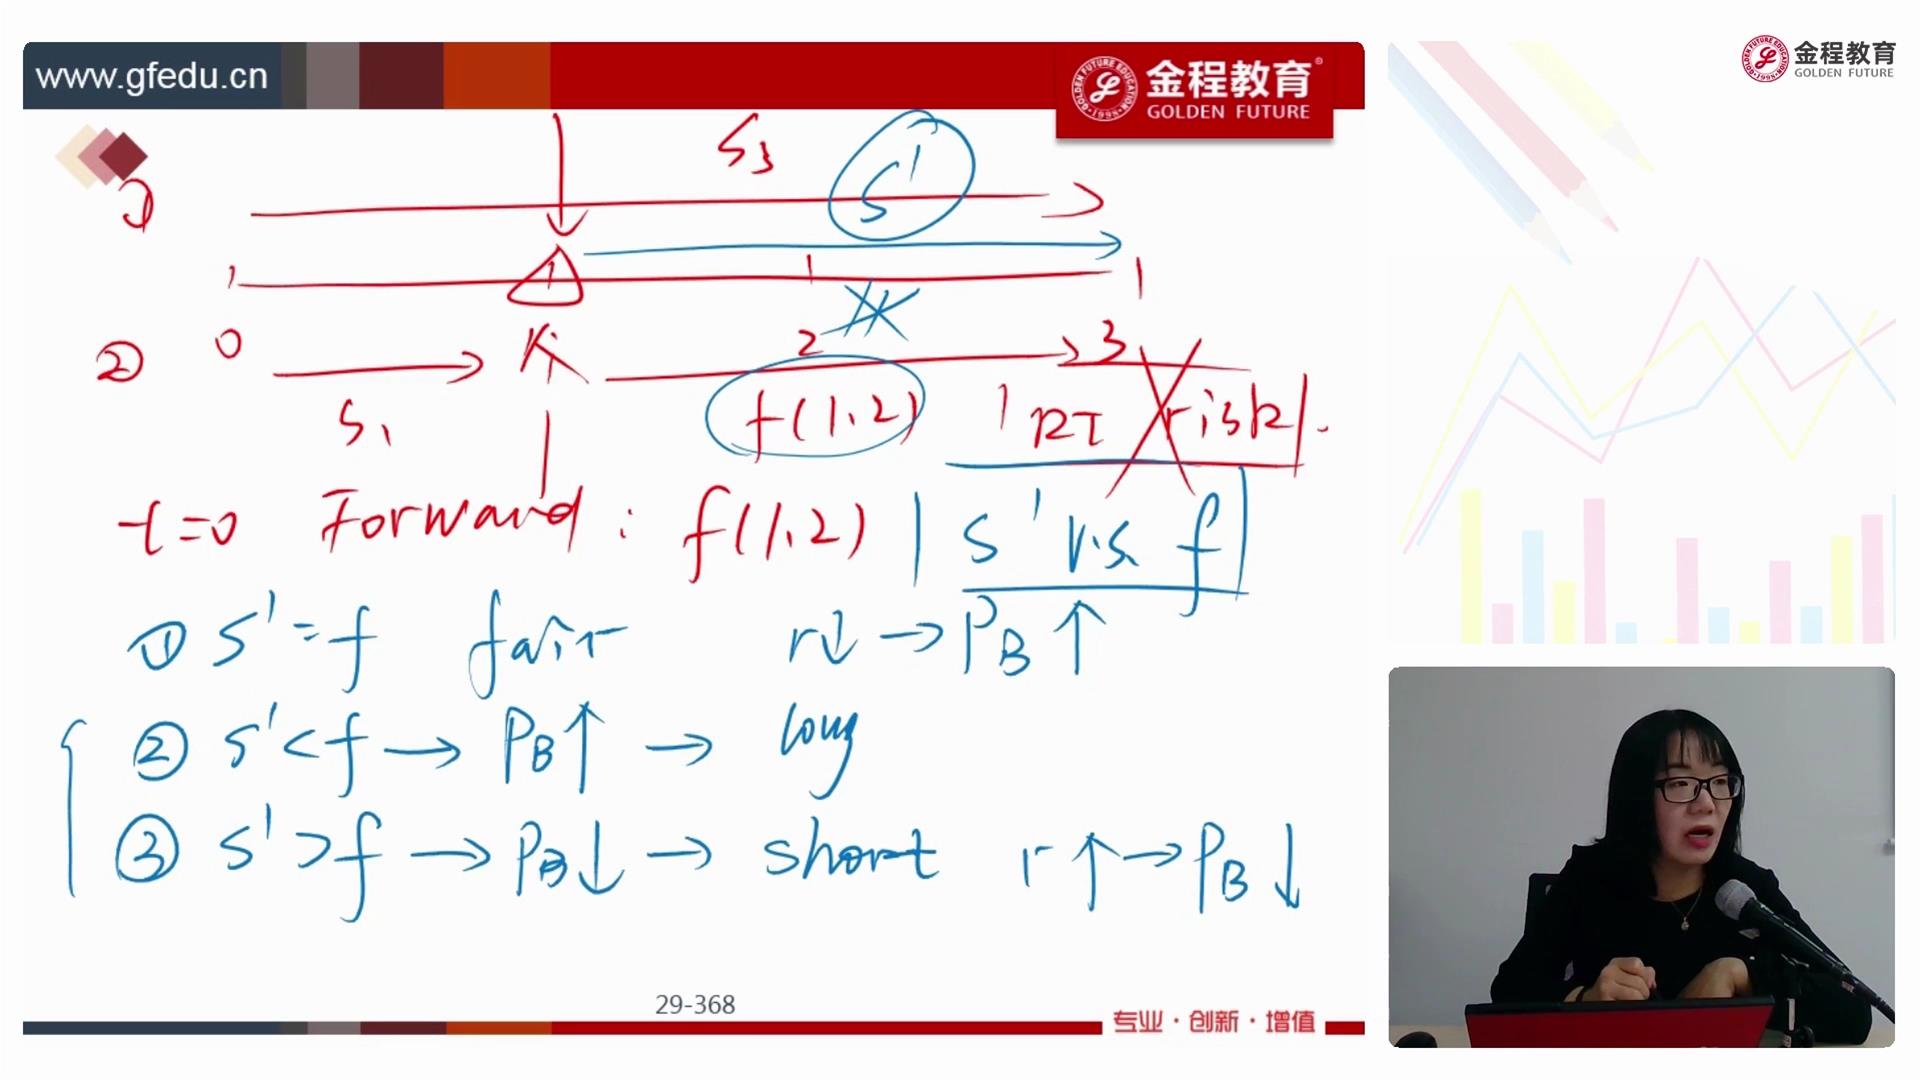 www.gfedu.cn
金程教育
GOLDEN FUTURE
金程教育
GOLDEN FUTURE
S₃ S'
①
0 1 2 3
②
S₁ f(1,2) RI risk
t=0 Forward: f(1,2) S' v.s. f
① S' = f fair r↓ → P_B ↑
② S' < f → P_B ↑ → long
③ S' > f → P_B ↓ → short r ↑ → P_B ↓
29-368
专业·创新·增值